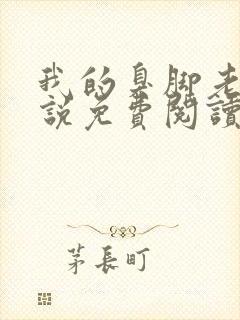 我的臭脚老
说免費閱讀
茅長町